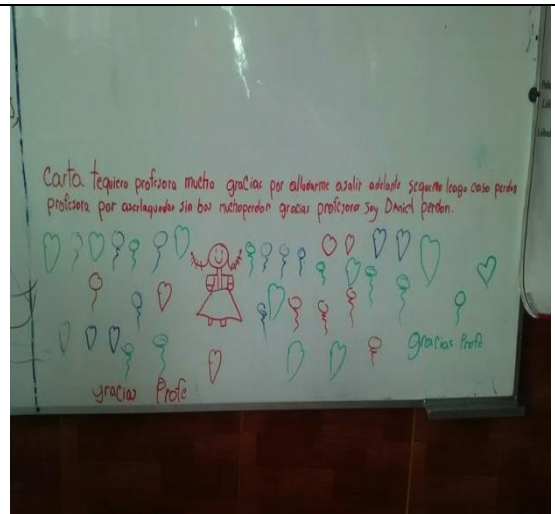 Carta tequiero profesora mucho gracias por alludarme asalir adelante sequeno leago caso perdon
profesora por aserlaquedar sin bos muchoperdon gracias profesora Soy Daniel perdon.
gracias Profe
gracias Profe